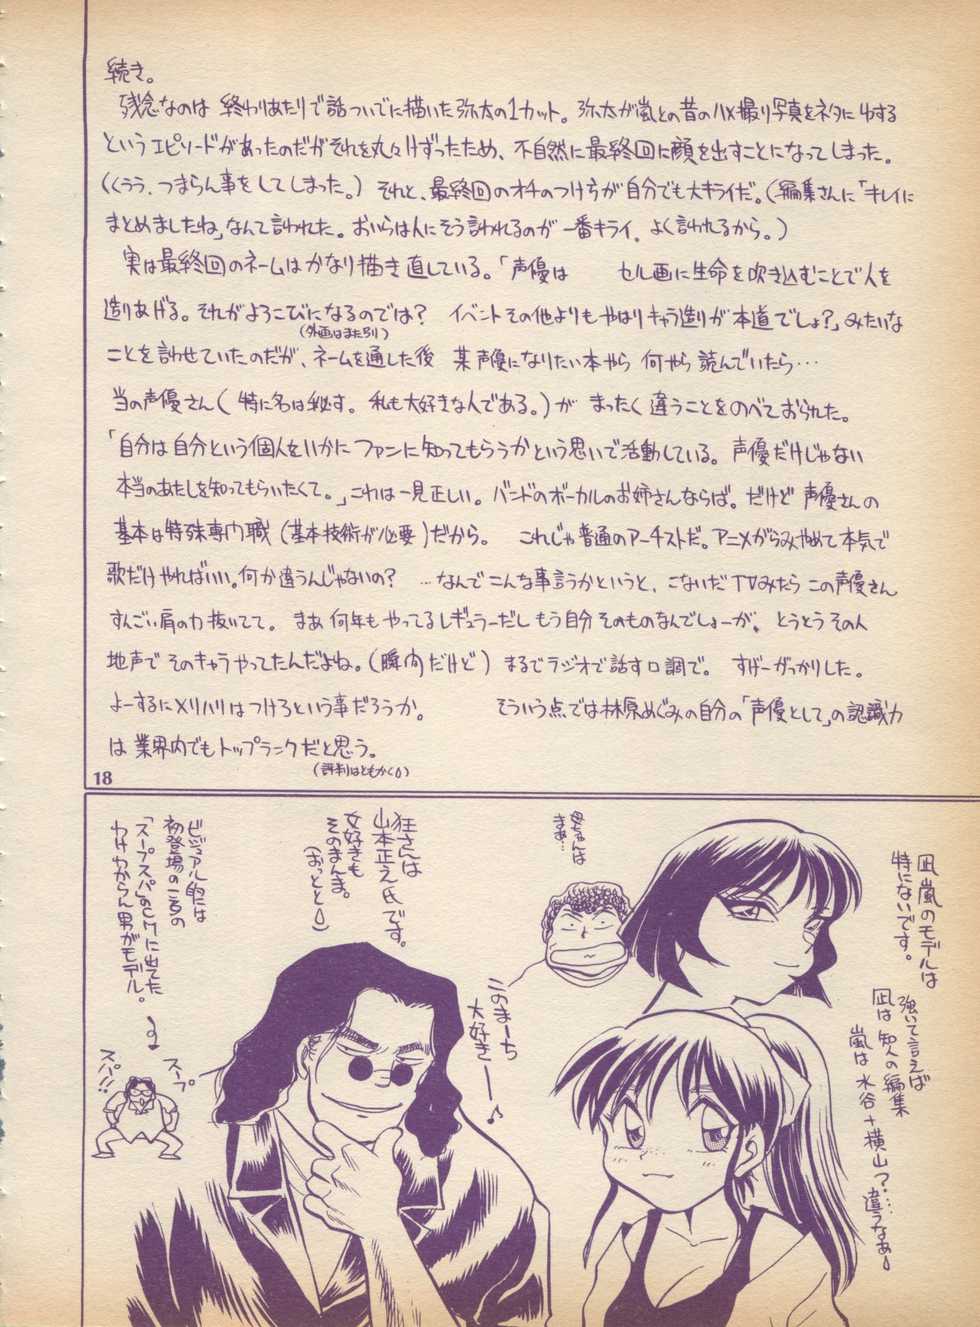 続き。
残念なのは 終わりあたりで話ついでに描いた弥太の1カット。弥太が嵐との昔のハメ撮り写真をネタに
というエピソードがあったのだがそれを丸々けずったため、不自然に最終回に顔を出すことになってしまった。
(くぅぅ、つまらん事をしてしまった。) それと、最終回のオチのつけ方が自分でも大キライだ。(編集さんに「キレイに
まとめましたね」なんて言われた。おいらは人にそう言われるのが一番キライ。よく言われるから。)
実は最終回のネームはかなり描き直している。「声優は セル画に生命を吹き込むことで人を
造りあげる。それがよろこびになるのでは? イベントその他よりもやはりキャラ造りが本道でしょ?」みたいな
(外画はまた別)
ことを言わせていたのだが、ネームを通した後 某声優になりたい本やら何やら読んでいたら…
当の声優さん(特に名は秘す。私も大好きな人である。)が まったく違うことをのべておられた。
「自分は自分という個人をいかにファンに知ってもらうかという思いで活動している。声優だけじゃない
本当のあたしを知ってもらいたくて。」これは一見正しい。バンドのボーカルのお姉さんならば。だけど声優さんの
基本は特殊専門職(基本技術が必要)だから。 これじゃ普通のアーチストだ。アニメがらみやめて本気で
歌だけやればいい。何か違うんじゃないの? …なんでこんな事言うかというと、こないだTVみたらこの声優さん
すんごい肩の力抜いてて。まあ何年もやってるレギュラーだしもう自分そのものなんでしょーが、とうとうその人
地声でそのキャラやってたんだよね。(瞬間だけど) まるでラジオで話す口調で。 すげーがっかりした。
よーするにメリハリはつけろという事だろうか。 そういう点では林原めぐみの自分の「声優として」の認識力
は業界内でもトップランクだと思う。
(評判はともかく)
18
凪嵐のモデルは
特にないです。
強いて言えば
凪は知人の編集
嵐は水谷+横山?…
違うなぁ
母ちゃんは
まぁ…
このまーち
大好きー♪
狂さんは
山本正之氏です。
女好きも
そのまんま。
(おっとと)
ビジュアル的には
初登場のころの
「スープスパ」のCMに出てた
わけわからん男がモデル。
スープ
スパ!!